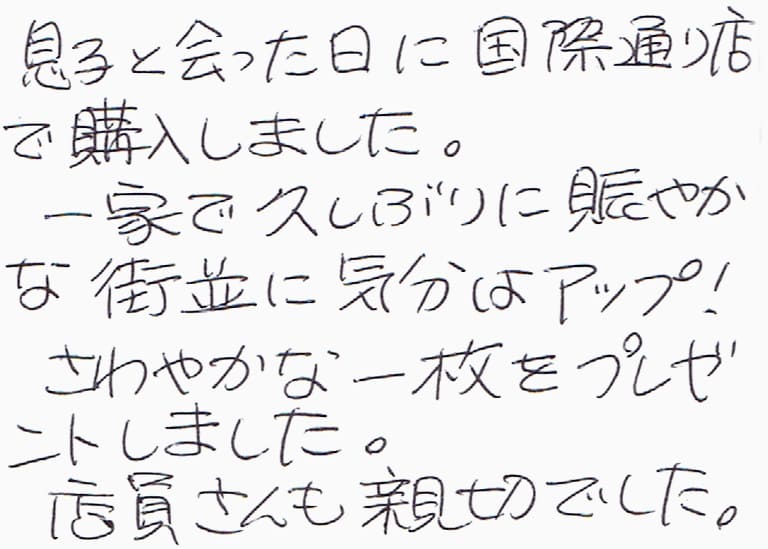 息子と会った日に国際通り店
で購入しました。
一家で久しぶりに賑やか
な街並に気分はアップ!
さわやかな一枚をプレゼ
ントしました。
店員さんも親切でした。